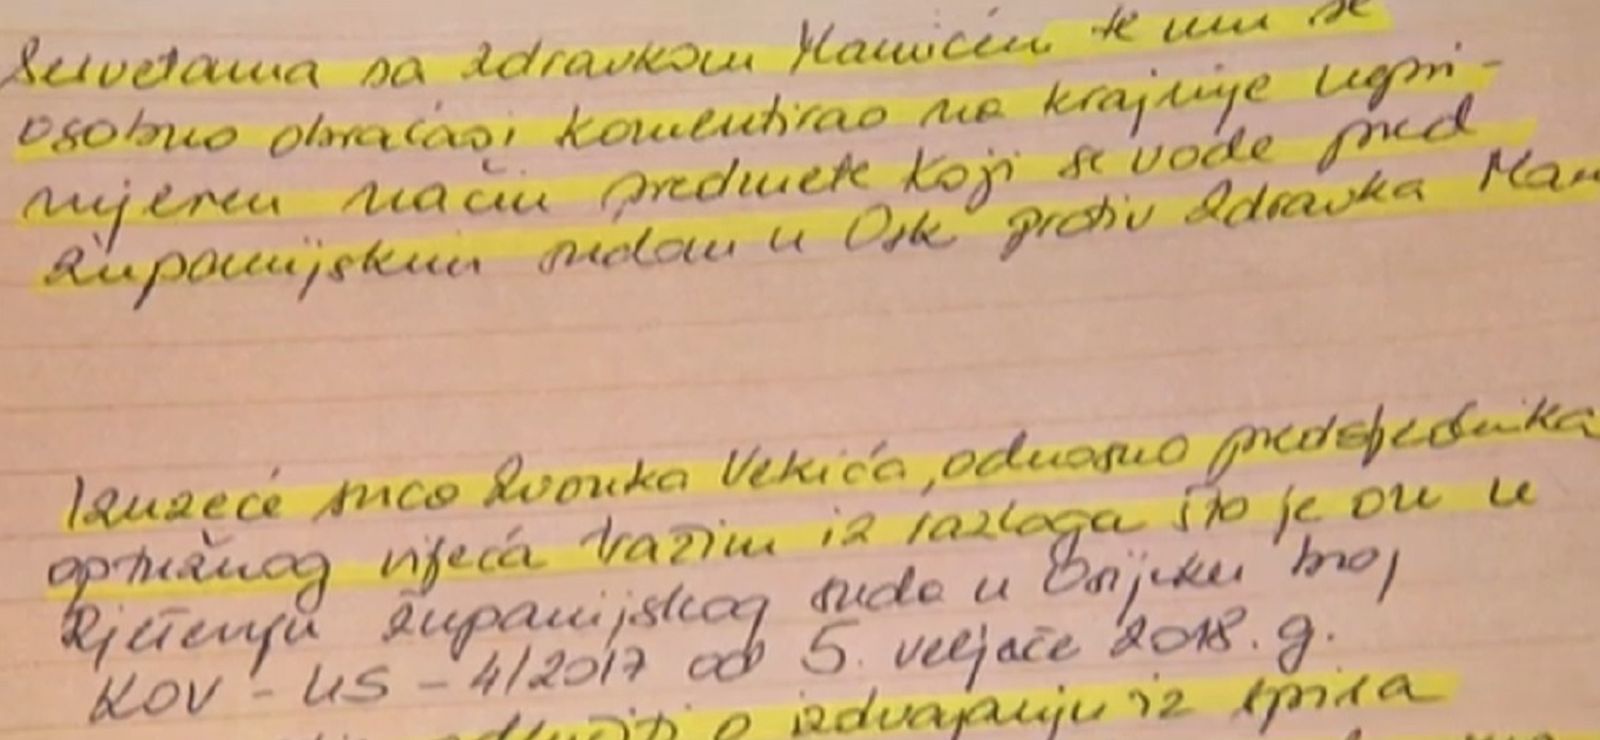 sa Zdravkom Mamićem te mu se
osobno obraćao i komentirao na krajnje nepri-
mjeren način predmete koji se vode pred
Županijskim sudom u Osk protiv Zdravka Mam
Izuzeće suca Zvonka Vekića, odnosno predsjednika
optužnog vijeća tražim iz razloga što je on u
Rješenju Županijskog suda u Osijeku broj
KOV - US - 4/2017 od 5. veljače 2018. g.
o izdvajanju iz spisa